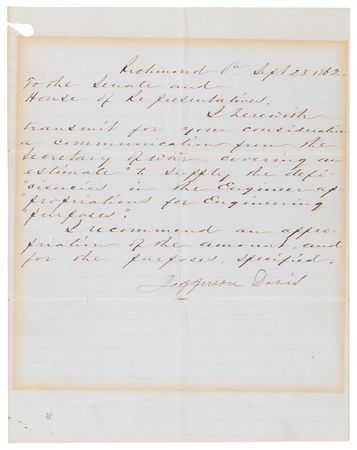 Richmond Va Sept 23. 1862.
To the Senate and
House of Representatives.
I herewith
transmit for your consideration
a communication from the
Secretary of War, covering an
estimate "to supply the defi-
"ciencies in the Engineer ap-
"propriations for Engineering
"purposes".
I recommend an appro-
priation of the amount, and
for the purposes, specified.
Jefferson Davis